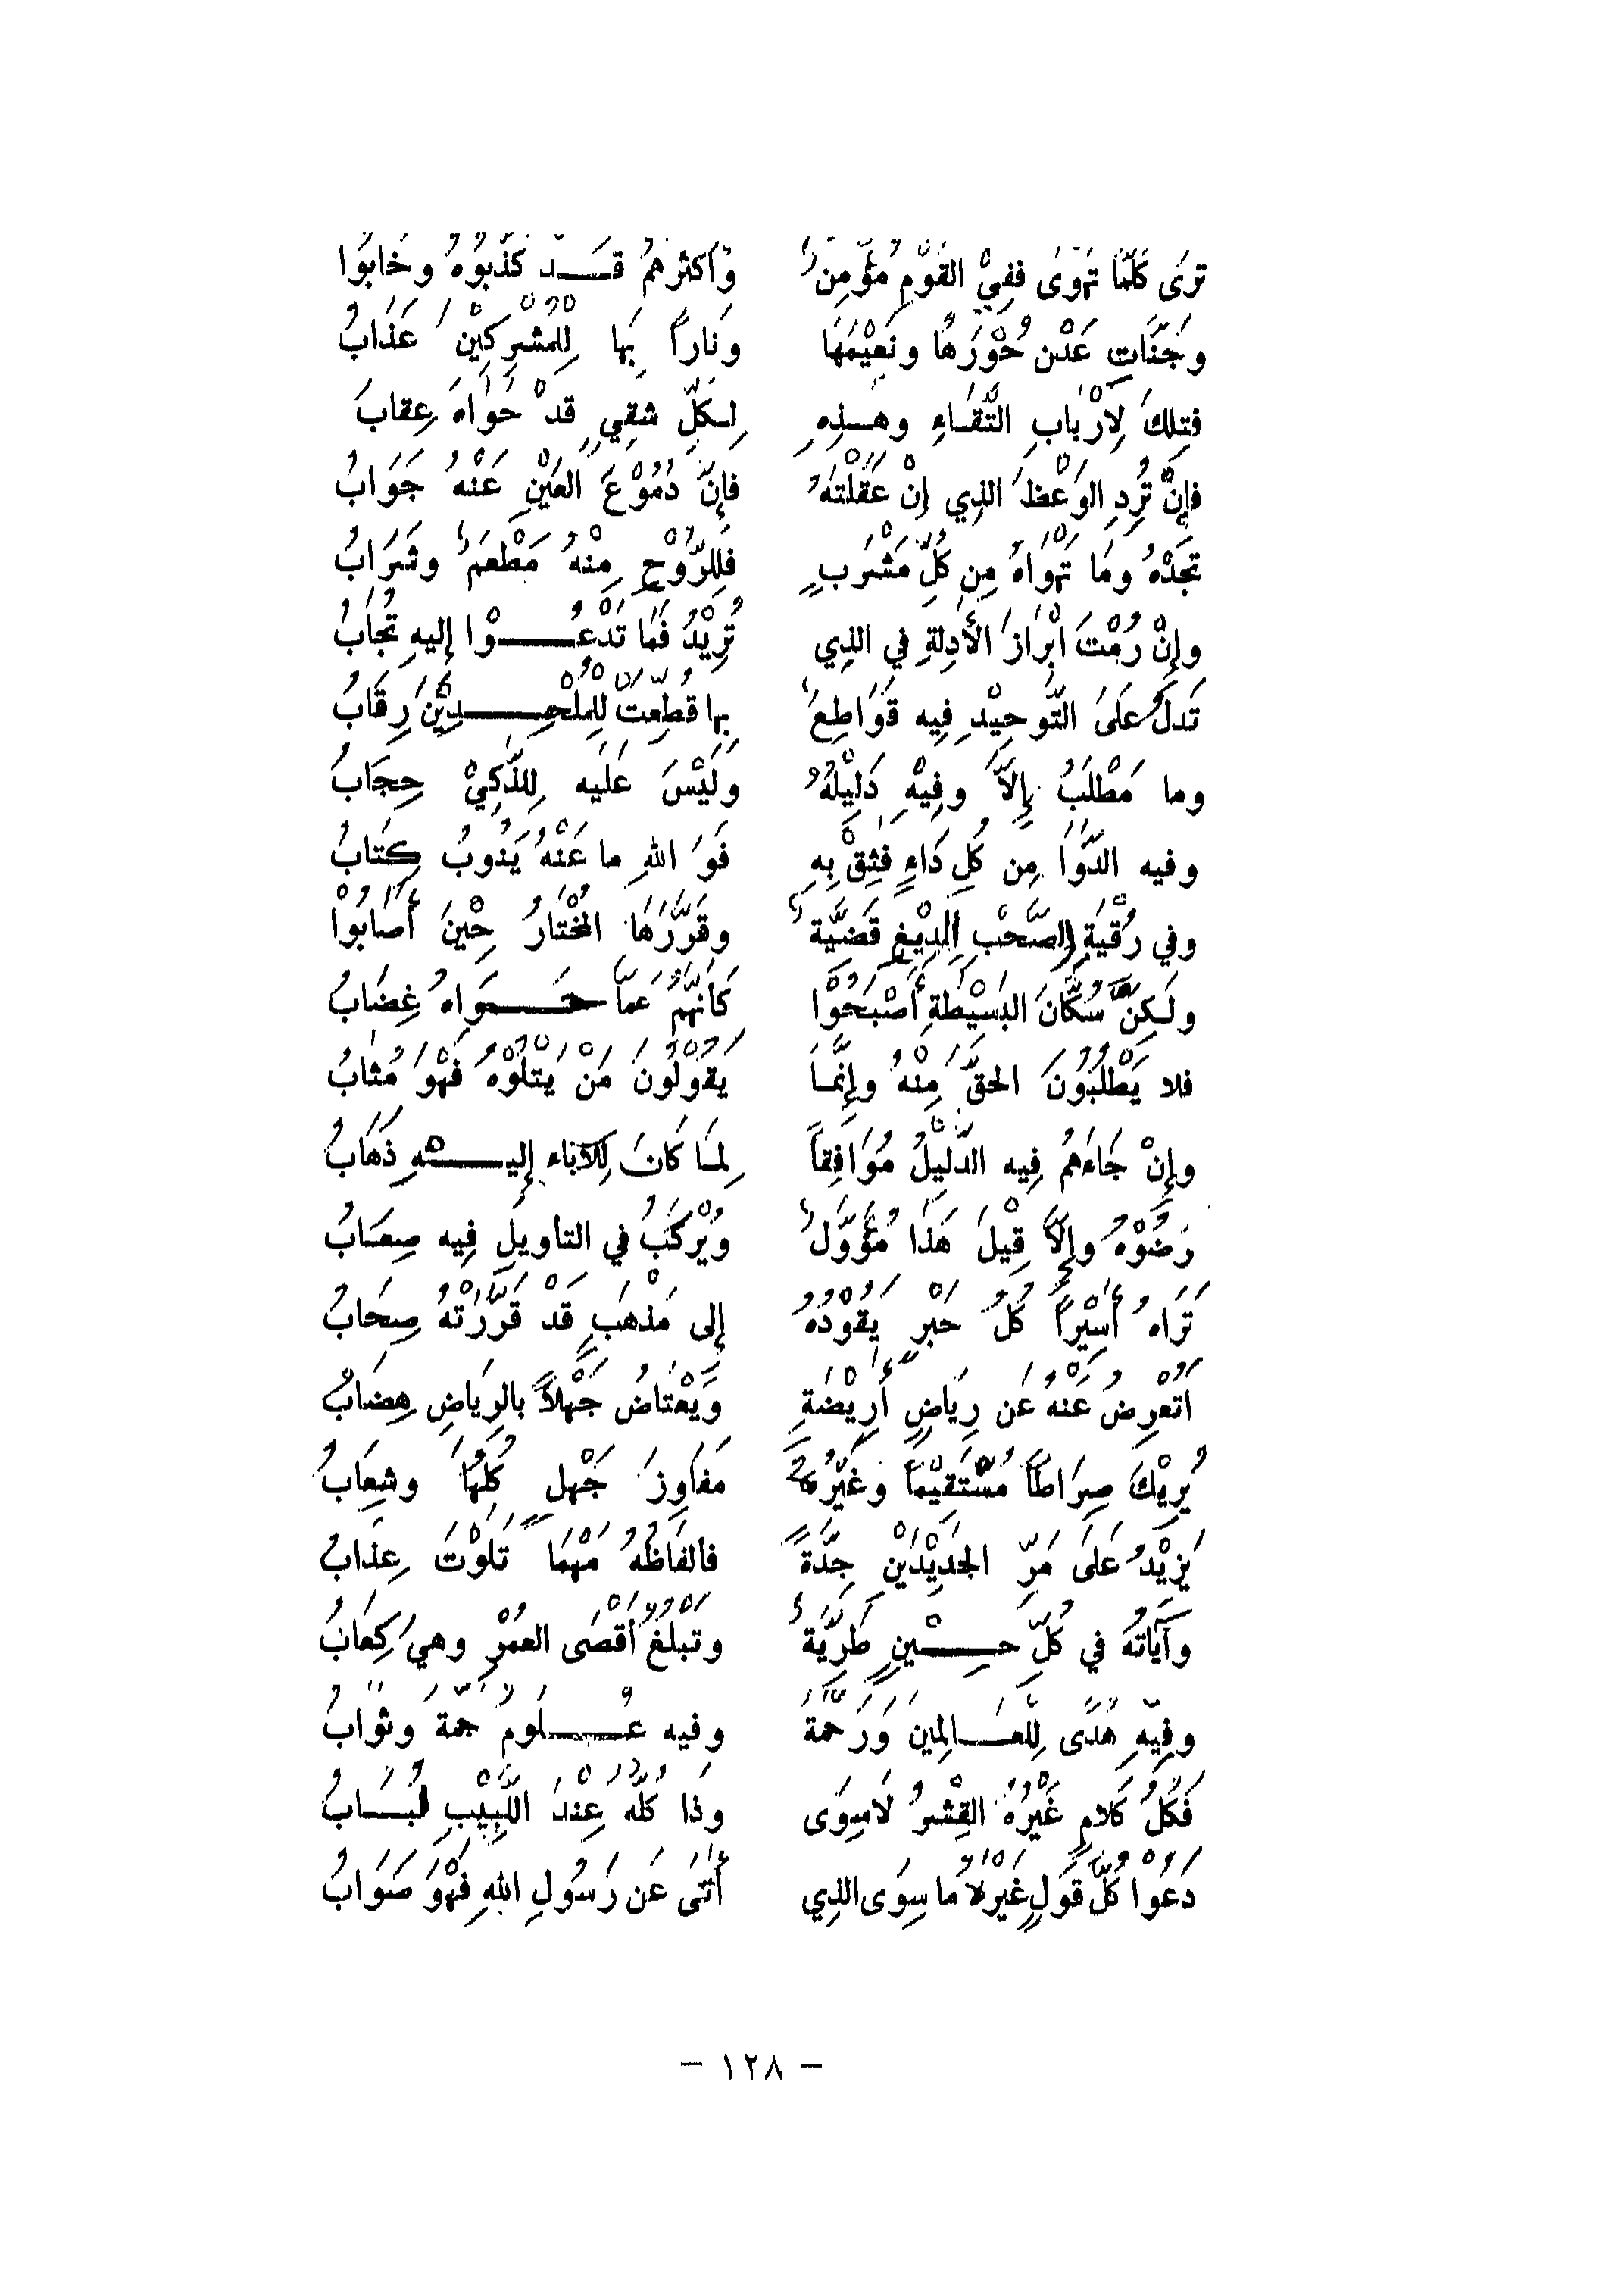 تَرَى كُلَّمَا تَهْوَى فَفِيْ القَوْمِ مُؤْمِنٌ وَأَكْثَرُهُمْ قَدْ كَذَّبُوْهُ وخَابُوا
وَجَنَّاتِ عَدْنٍ حُوْرَهَا ونَعِيْمَهَا وَنَاراً بِهَا لِلْمُشْرِكِيْنَ عَذَابُ
فَتِلكَ لِأرْبَابِ التُّقَاءِ وهَذِهِ لِكُلِّ شَقِيٍ قَدْ حَوَاهَ عِقابَ
فإِنْ تُرِدِ الوَعْظَ الذِي إِنْ عَقَلْتَهُ فإِنَّ دُمُوْعَ العَيْنِ عَنْهُ جَوَابُ
تَجِدْهُ ومَا تَهْوَاهُ مِن كُلِّ مَشْرَبٍ فَلِلرُّوْحِ مِنْهُ مَطْعَمٌ وشَرَابُ
وإِنْ رُمْتَ أَبْرَازَ الأَدِلةِ في الذِي تُرِيْدُ فَمَا تَدْعُوْا إليهِ تُجَابُ
تَدلُ عَلىَ التَّوحِيْدِ فِيه قَوَاطِعٌ بِها قُطِّعَتْ لِلمُلْحِدِيْنَ رِقَابُ
وما مَطْلَبٌ إِلاَّ وفِيْهِ دَلِيْلُهُ وَلَيْسَ عَلَيه لِلذَّكِيْ حِجَابُ
وفيه الدَّوَا مِن كُلِ دَاءٍ فَثِقْ بِهِ فَوَ اللهِ ما عَنْهُ يَنُوبُ كِتَابُ
وفي رُقْيَةِ الصَّحْبِ الَّدِيْغِ قَضِيَّةٌ وقَرَّرَهَا المُخْتَارُ حِيْنَ أَصَابُوْا
ولَكِنَّ سُكَّانَ البَسِيْطَةِ أَصْبَحُوْا كَأَنَّهُمُ عَماَّ حَوَاهُ غِضَابُ
فلا يَطْلُبُوْنَ الحقَّ مِنْهُ وإِنَّمَا يَقُوْلُونَ مَنْ يَتْلُوْهُ فَهْوَ مُثَابُ
وإِنْ جَاءَهُمُ فِيه الدَّلِيْلُ مُوَافِقاً لِمَا كَانَ لِلآبَاء إليهِ ذَهَابُ
رَضُوْهُ وإِلاَّ قِيْلَ هَذَا مُؤَوَّلٌ وَيُرْكَبُ في التأويلِ فِيه صِعَابُ
تَرَاهُ أَسِيْراً كُلُ حَبْرٍ يَقُوْدُهُ إلى مَذْهَبٍ قَدْ قَرَّرَتْهُ صِحَابُ
اتُعْرِضُ عَنْهُ عَن رِيَاضٍ أَرِيْضَةٍ وَيَعْتَاضُ جَهْلاً بالرِيَاضِ هِضَابُ
يُرِيْكَ صِرَاطاً مُسْتَقِيْماً وغَيْرُهُ مَفَاوِزَ جَهْلٍ كُلِهَا وشِعَابُ
يَزِيْدُ عَلَى مَرِّ الجَدِيْدَيْنِ جِدَّةً فألفَاظُهُ مَهْمَا تَلَوْتَ عِذَابُ
وآيَاتُهُ في كُلِّ حِيْنٍ طَرِيَّةٌ وتَبْلُغُ أَقْصَى العُمْرِ وهيَ كِعَابُ
وفِيْهِ هُدًى لِلْعَالِمَينِ وَرَحْمَةٌ وفيه عُلُومٌ جَمَّةٌ وثَوَابُ
فَكُلُ كَلامٍ غَيْرُهُ القِشْرُ لاَسِوَى وذَا كُلُّهُ عِنْدَ اللَّبِيْبِ لُبَابُ
دَعُوْا كُلَّ قَولٍ غَيْرَهُ مَا سِوَى الذِي أَتَى عَن رَسُولِ اللهِ فَهْوَ صَوَابُ
– ١٢٨ –